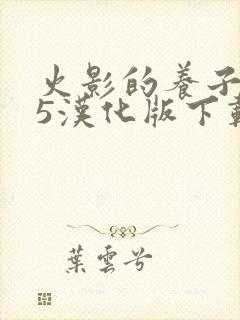 火影的養子
5漢化版下載
葉雲兮